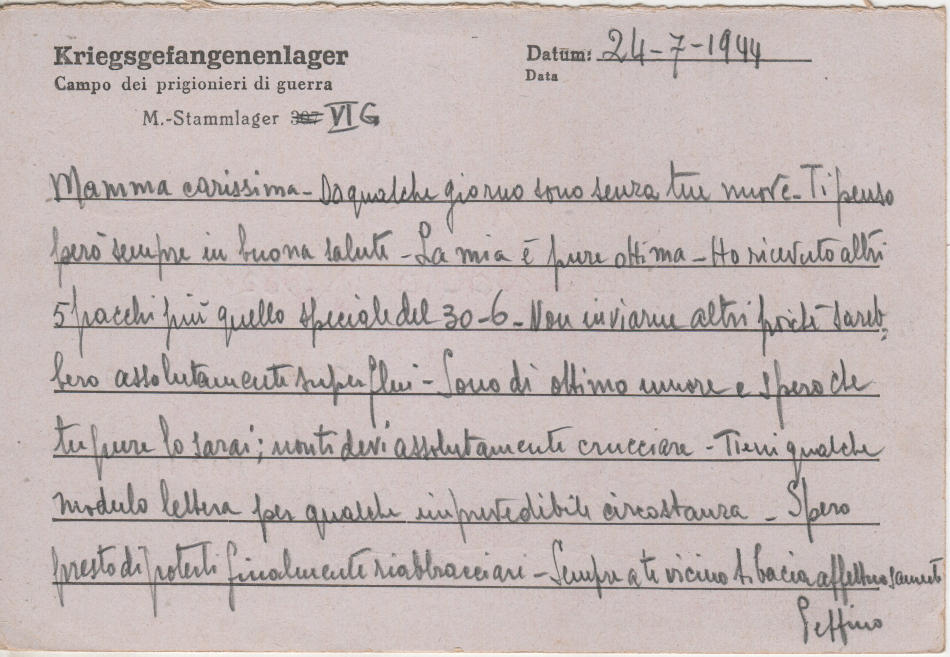 Kriegsgefangenenlager
Campo dei prigionieri di guerra
M.-Stammlager 307 VI G
Datum: 24-7-1944
Data
Mamma carissima - Da qualche giorno sono senza tue nuove - Ti penso
però sempre in buona salute - La mia è pure ottima - Ho ricevuto altri
5 pacchi più quello speciale del 30-6 - Non inviarne altri poiché sareb,
bero assolutamente superflui - Sono di ottimo umore e spero che
tu pure lo sarai; non ti devi assolutamente crucciare - Tieni qualche
modulo lettera per qualche imprevedibile circostanza - Spero
presto di poterti finalmente riabbracciare - Sempre a te vicino ti bacia affettuosamente